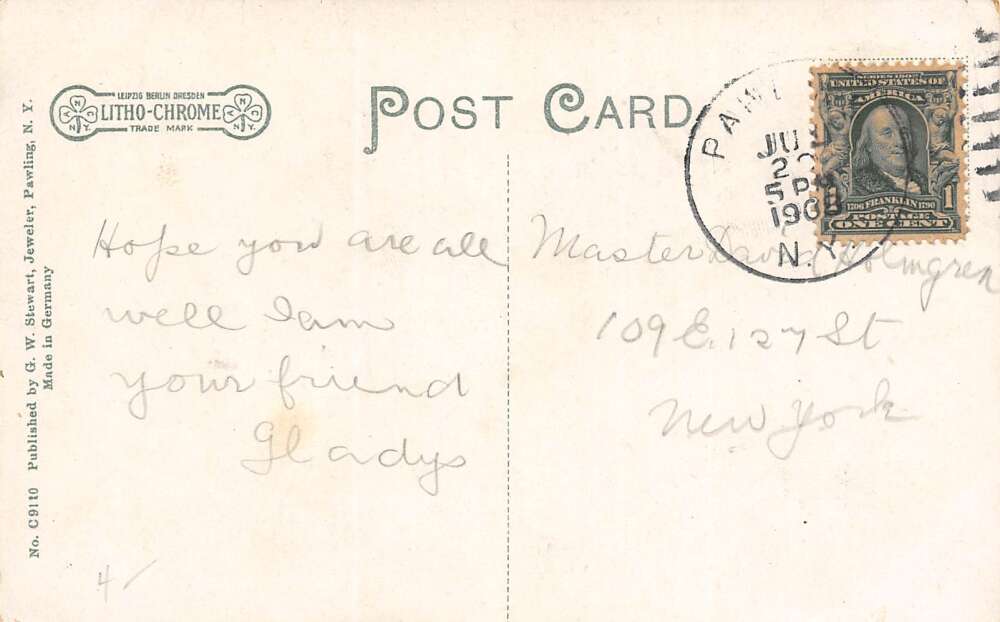 No. C9110 Published by G. W. Stewart, Jeweler, Pawling, N. Y.
Made in Germany
LEIPZIG BERLIN DRESDEN
LITHO-CHROME
TRADE MARK
POST CARD
N.Y.
5 P
190
SERIES 1902
UNITED STATES OF
AMERICA
1706 FRANKLIN 1790
POSTAGE
ONE CENT
1
Hope you are all
well I am
your friend
Gladys
Master David Holmgren
109 E. 127 St
New York
4